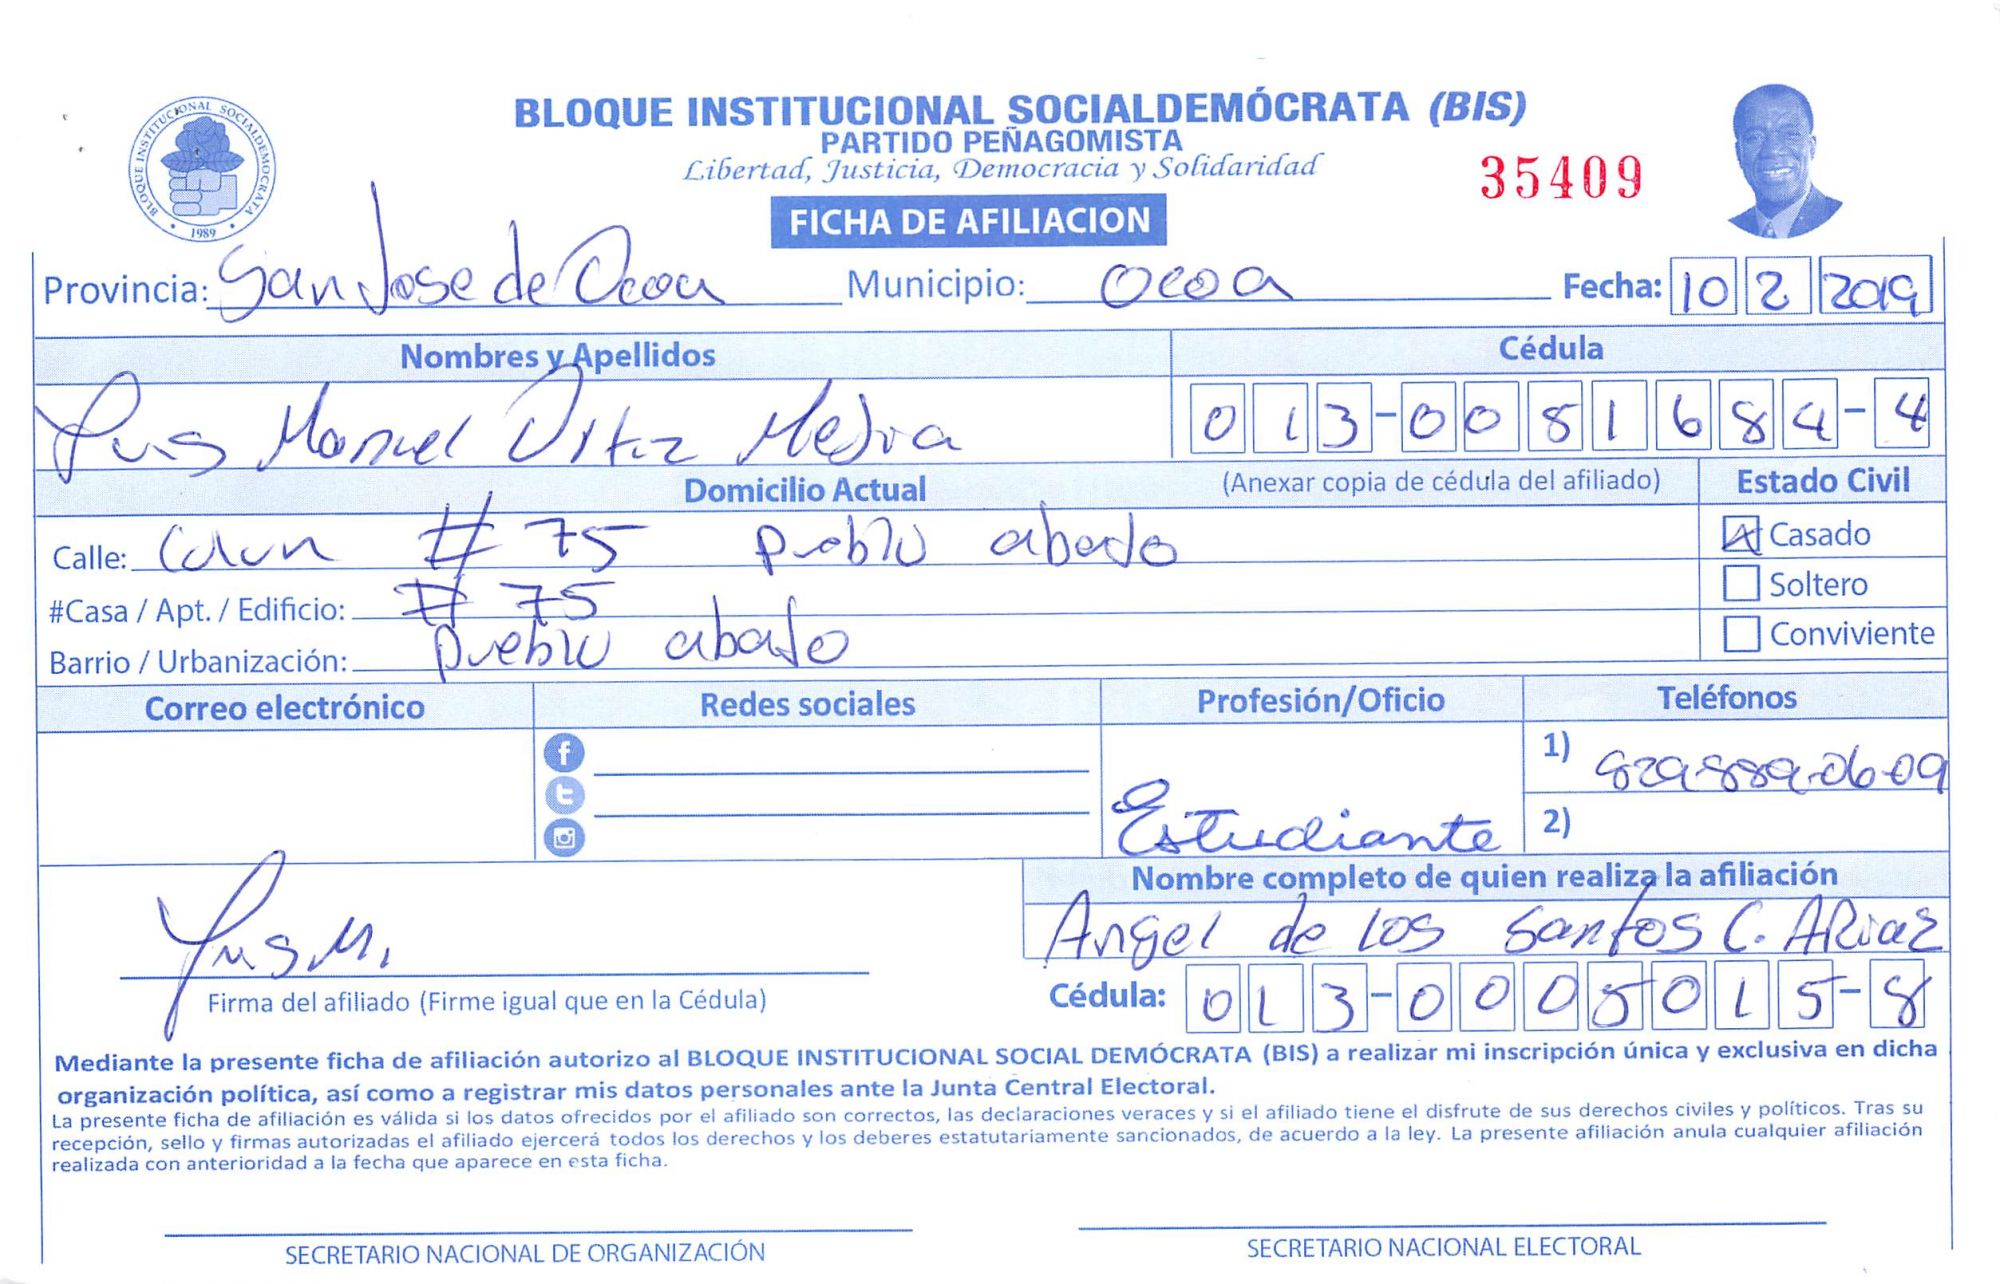 BLOQUE INSTITUCIONAL SOCIALDEMÓCRATA
1989
BLOQUE INSTITUCIONAL SOCIALDEMÓCRATA (BIS)
PARTIDO PEÑAGOMISTA
Libertad, Justicia, Democracia y Solidaridad
35409
FICHA DE AFILIACION
Provincia: San Jose de Ocoa Municipio: Ocoa Fecha: 10 2 2019
Nombres y Apellidos Cédula
Luis Manuel Ortiz Mejia 013-0081684-4
Domicilio Actual (Anexar copia de cédula del afiliado) Estado Civil
Calle: # 75 pueblo abajo Casado
#Casa / Apt. / Edificio: # 75 Soltero
Barrio / Urbanización: pueblo abajo Conviviente
Correo electrónico Redes sociales Profesión/Oficio Teléfonos
1) 829-889-0609
Estudiante 2)
Nombre completo de quien realiza la afiliación
Angel de los Santos C. ARiaz
Luis M.
Firma del afiliado (Firme igual que en la Cédula) Cédula: 013-0005015-8
Mediante la presente ficha de afiliación autorizo al BLOQUE INSTITUCIONAL SOCIAL DEMÓCRATA (BIS) a realizar mi inscripción única y exclusiva en dicha
organización política, así como a registrar mis datos personales ante la Junta Central Electoral.
La presente ficha de afiliación es válida si los datos ofrecidos por el afiliado son correctos, las declaraciones veraces y si el afiliado tiene el disfrute de sus derechos civiles y políticos. Tras su
recepción, sello y firmas autorizadas el afiliado ejercerá todos los derechos y los deberes estatutariamente sancionados, de acuerdo a la ley. La presente afiliación anula cualquier afiliación
realizada con anterioridad a la fecha que aparece en esta ficha.
SECRETARIO NACIONAL DE ORGANIZACIÓN SECRETARIO NACIONAL ELECTORAL